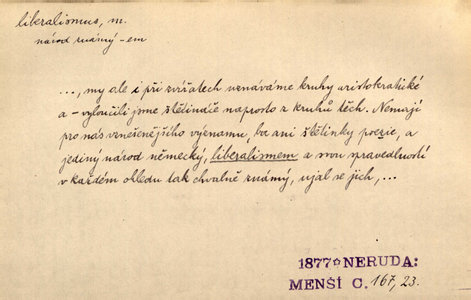 liberalismus, m.
národ známý -em
..., my ale i při zvířatech uznáváme kruhy aristokratické
a – vyloučili jsme štětináče naprosto z kruhů těch. Nemají
pro nás vznešenějšího významu, ba ani štětinky poezie, a
jediný národ německý, liberalismem a svou spravedlností
v každém ohledu tak chvalně známý, ujal se jich, ...
1877 NERUDA:
MENŠÍ C. 167, 23.